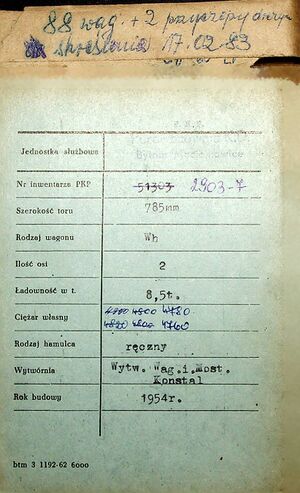 88 wag. + 2 przyczepy
skreślenia 17.02.83
P.K.P.
Jednostka służbowa
Bytom
Nr inwentarza PKP 51303 2903-7
Szerokość toru 785mm
Rodzaj wagonu Wh
Ilość osi 2
Ładowność w t. 8,5t.
Ciężar własny 4800 4780
4820 4760
Rodzaj hamulca ręczny
Wytwórnia Wytw. Wag.i.Most.
Konstal
Rok budowy 1954r.
btm 3 1192-62 6000